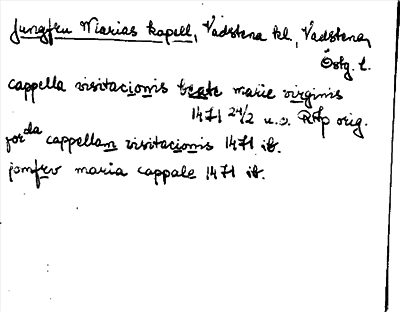 Jungfru Marias kapell, Vadstena kl., Vadstena,
Östg. l.
cappella visitacionis beate marie virginis
1471 24/2 u.o. RAp orig.
forda cappellam visitacionis 1471 ib.
jomfrv maria cappale 1471 ib.